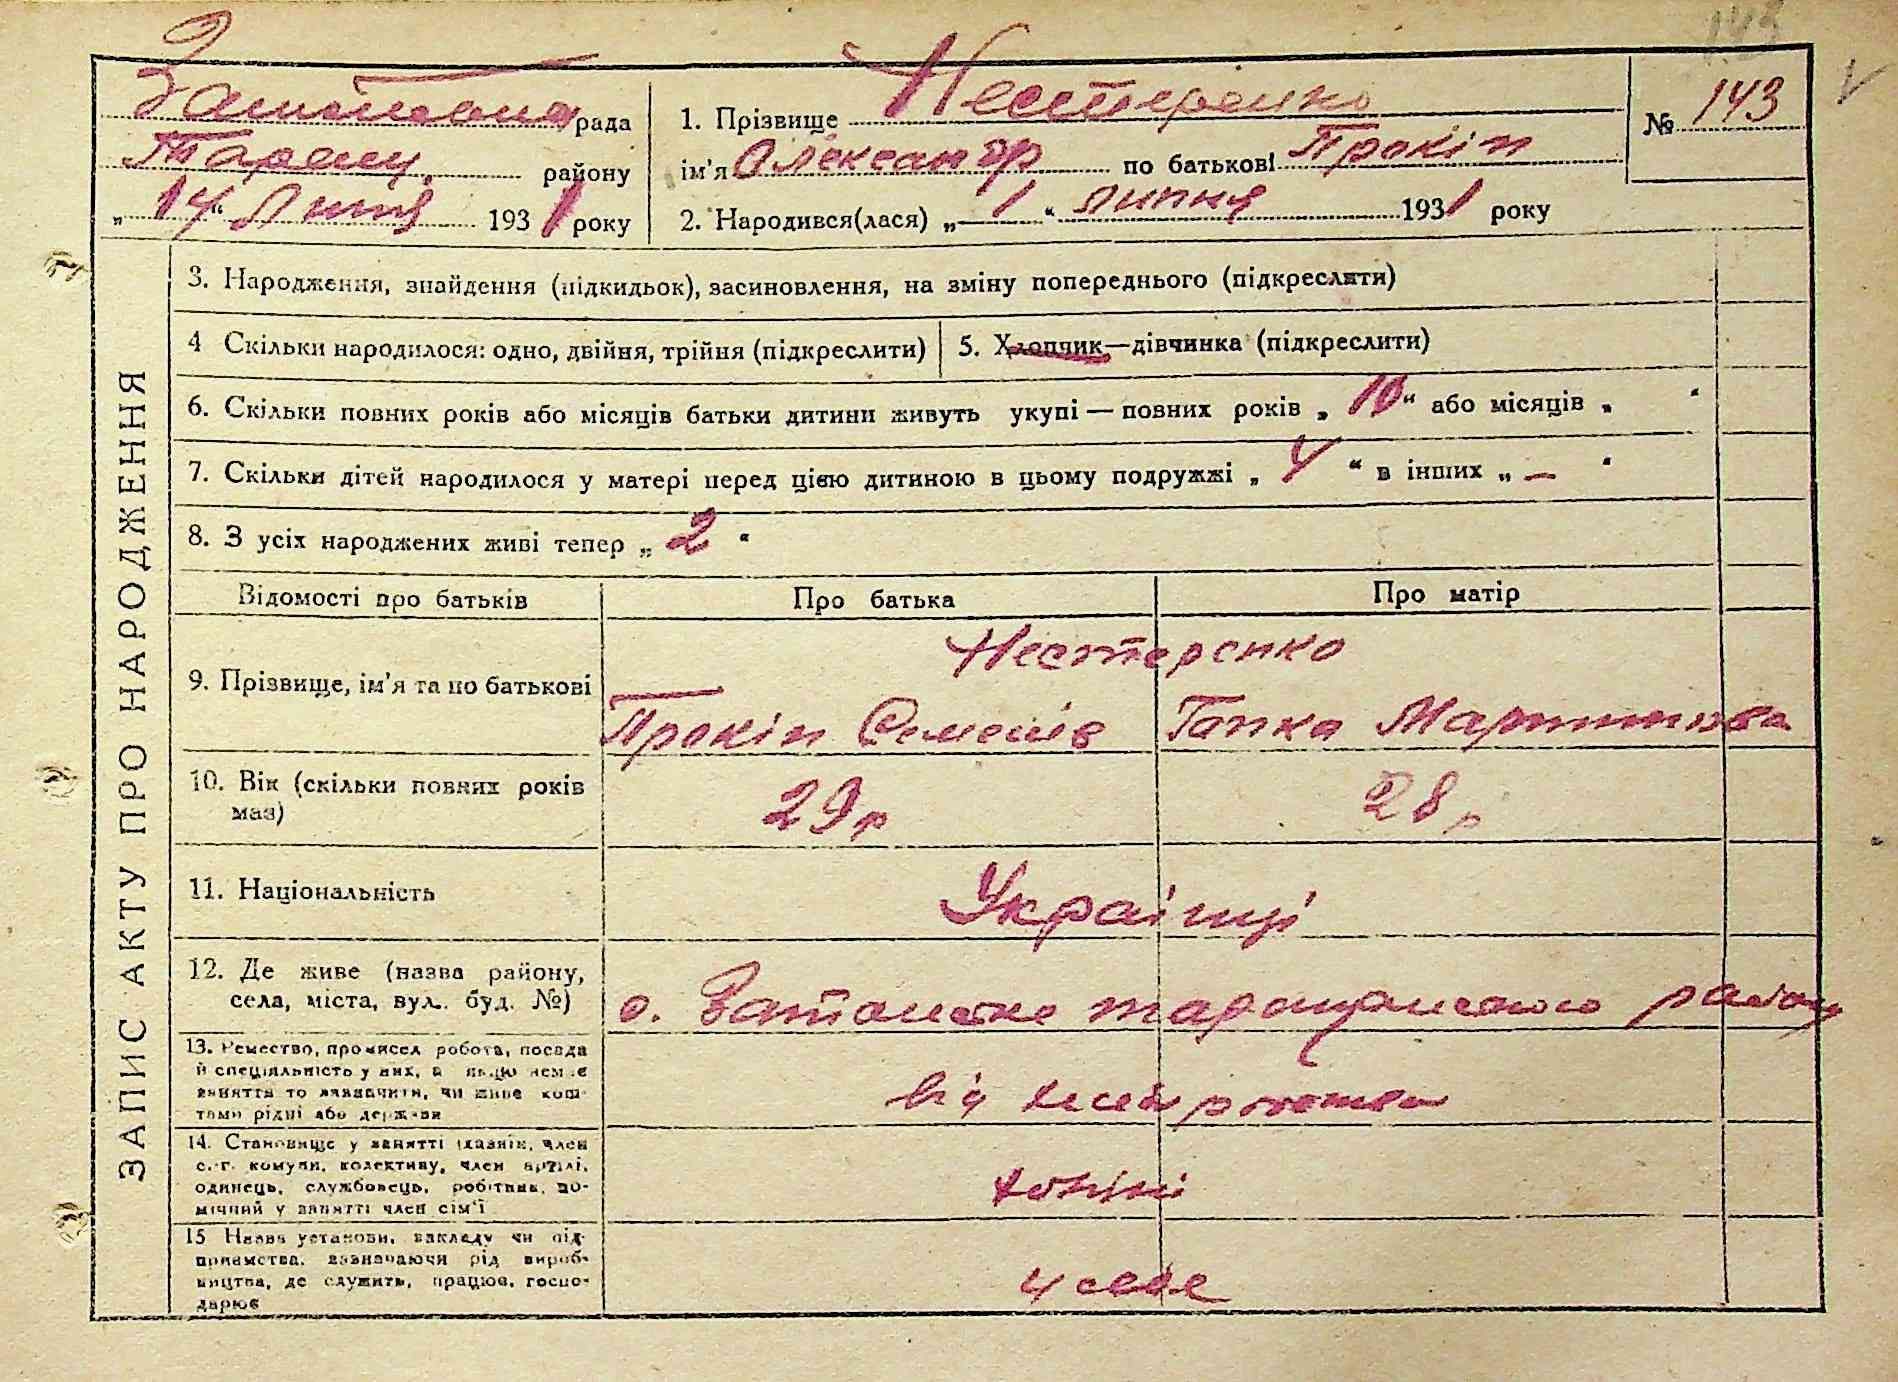 143
рада
Таращ. району
„14“ Липня 1931 року
1. Прізвище Нестеренко
ім'я Олександр по батькові Прокіп
2. Народився(лася) „1“ липня 1931 року
№ 143
ЗАПИС АКТУ ПРО НАРОДЖЕННЯ
3. Народження, знайдення (підкидьок), засиновлення, на зміну попереднього (підкреслити)
4 Скільки народилося: одно, двійня, трійня (підкреслити)
5. Хлопчик—дівчинка (підкреслити)
6. Скільки повних років або місяців батьки дитини живуть укупі — повних років „10“ або місяців „ “
7. Скільки дітей народилося у матері перед цією дитиною в цьому подружжі „4“ в інших „—“
8. З усіх народжених живі тепер „2“
Відомості про батьків Про батька Про матір
Нестеренко
9. Прізвище, ім'я та по батькові Прокіп Семенів Гапка Мартинова
10. Вік (скільки повних років має) 29 р 28 р
11. Національність Українці
12. Де живе (назва району,
села, міста, вул. буд. №) с. таращанского району
13. Ремество, промисел робота, посада
й спеціяльність у них, а якщо немає
заняття то зазначити, чи живе кош-
тами рідні або держави
від
14. Становище у занятті (хазяїн, член
с.-г. комуни, колективу, член артілі,
одинець, службовець, робітник, по-
мічний у занятті член сім'ї
15 Назва установи, закладу чи під-
приємства, зазначаючи рід вироб-
ництва, де служить, працює, госпо-
дарює
у себе